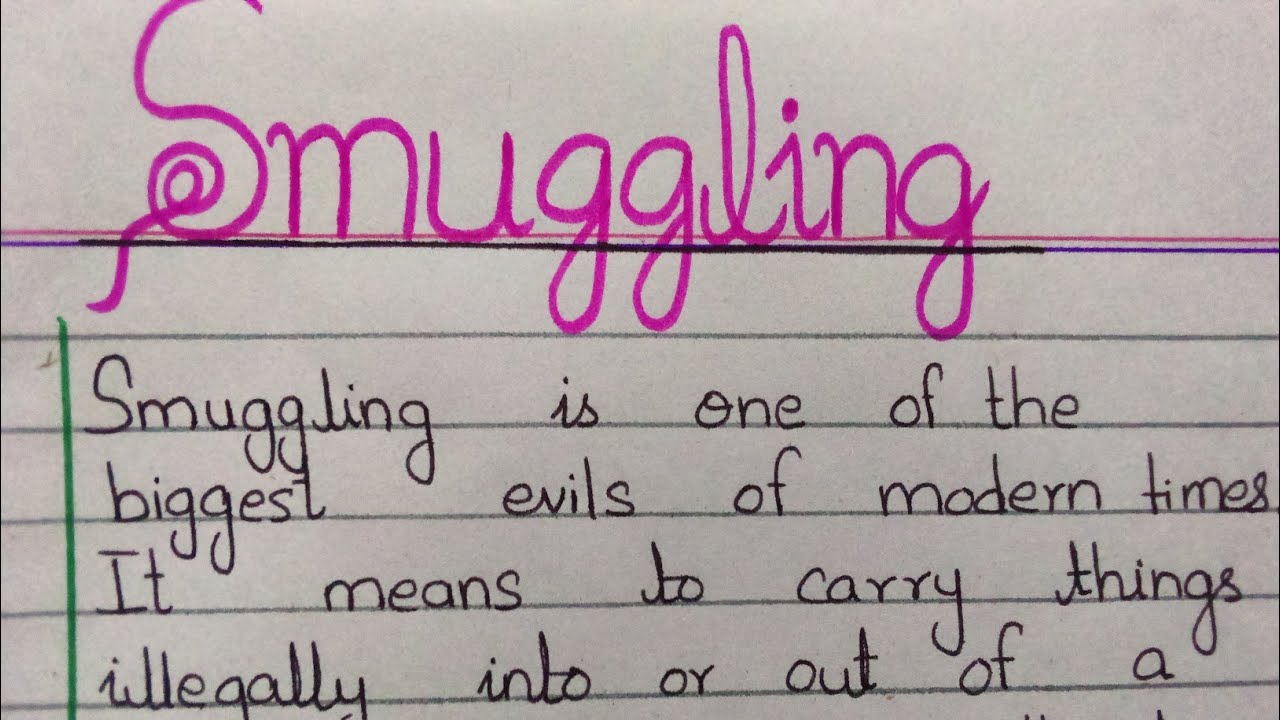 Smuggling
Smuggling is one of the
biggest evils of modern times
It means to carry things
illegally into or out of a